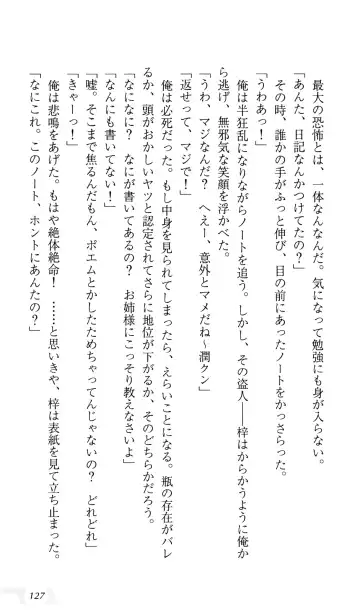 最大の恐怖とは、一体なんなんだ。気になって勉強にも身が入らない。
その時、誰かの手がふっと伸び、目の前にあったノートをかっさらった。
「あんた、日記なんかつけてたの？」
「うわあっ！」
俺は半狂乱になりながらノートを追う。しかし、その盗人――梓はからかうように俺か
ら逃げ、無邪気な笑顔を浮かべた。
「うわ、マジなんだ？　へえー、意外とマメだね～潤クン」
「返せって、マジで！」
俺は必死だった。もし中身を見られてしまったら、えらいことになる。瓶の存在がバレ
るか、頭がおかしいヤツと認定されてさらに地位が下がるか、そのどちらかだろう。
「なになに？　なにが書いてあるの？　お姉様にこっそり教えなさいよ」
「なんにも書いてない！」
「嘘。そこまで焦るんだもん、ポエムとかしたためちゃってんじゃないの？　どれどれ」
「きゃーっ！」
俺は悲鳴をあげた。もはや絶体絶命！　……と思いきや、梓は表紙を見て立ち止まった。
「なにこれ。このノート、ホントにあんたの？」
127